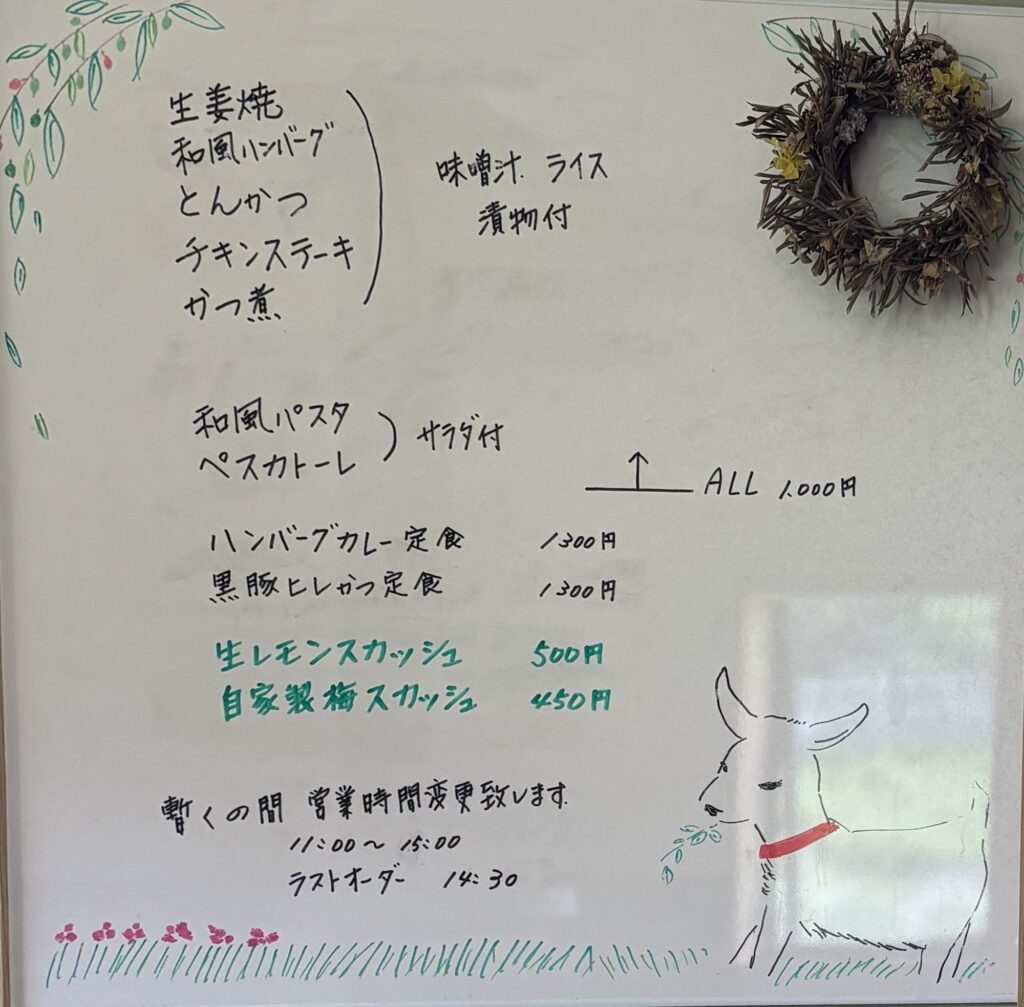 生姜焼
和風ハンバーグ
とんかつ
チキンステーキ
かつ煮
味噌汁 ライス
漬物付
和風パスタ
ペスカトーレ
サラダ付
↑ ALL 1.000円
ハンバーグカレー定食 1300円
黒豚ヒレかつ定食 1300円
生レモンスカッシュ 500円
自家製梅スカッシュ 450円
暫くの間 営業時間変更致します.
11:00~15:00
ラストオーダー 14:30